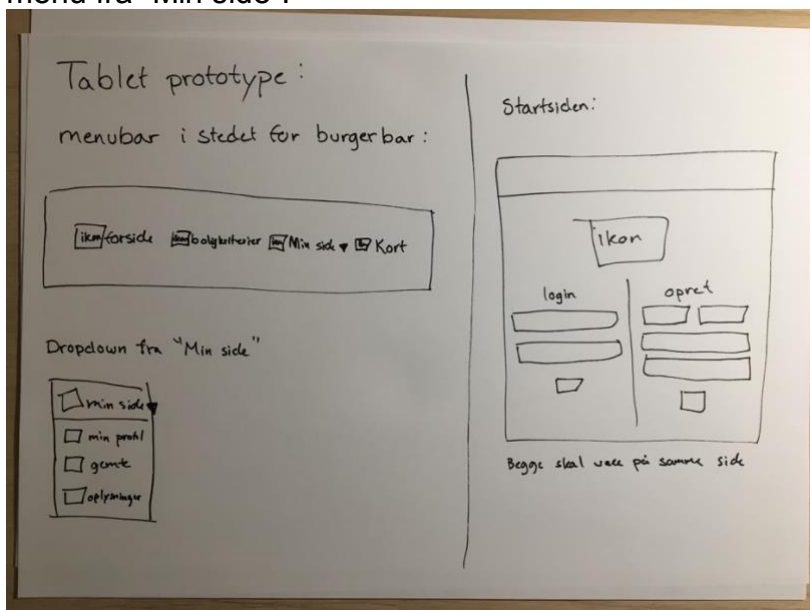 menu fra "Min side".
Tablet prototype:
menubar i stedet for burgerbar:
ikon forside boligkriterier ikon Min side ▼ Kort
Dropdown fra "Min side"
min side ▼
min profil
gemte
oplysninger
Startsiden:
ikon
login opret
Begge skal være på samme side